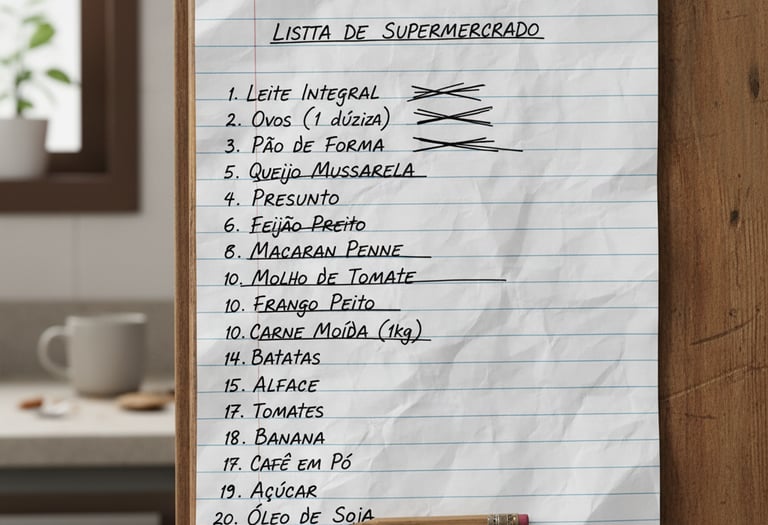 LISTTA DE SUPERMERCRADO
1. LEITE INTEGRAL
2. OVOS (1 dúziza)
3. PÃO DE FORMA
5. QUEIJO MUSSARELA
4. PRESUNTO
6. FEIJÃO PREITO
8. MACARAN PENNE
10. MOLHO DE TOMATE
10. FRANGO PEITO
10. CARNE MOÍDA (1kg)
14. BATATAS
15. ALFACE
17. TOMATES
18. BANANA
17. CAFÊ EM PÓ
19. AÇÚCAR
20. ÓLEO DE SOJA